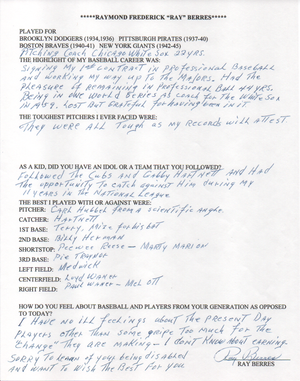 *****RAYMOND FREDERICK "RAY" BERRES*****
PLAYED FOR
BROOKLYN DODGERS (1934,1936) PITTSBURGH PIRATES (1937-40)
BOSTON BRAVES (1940-41) NEW YORK GIANTS (1942-45)
Pitching Coach Chicago White Sox 22 yrs.
THE HIGHLIGHT OF MY BASEBALL CAREER WAS:
Signing My 1st Contract in Professional Baseball
and working my way up to The Majors. Had The
Pleasure of Remaining in Professional Ball 44 yrs.
Being in one World Series as Coach for The White Sox
in 1959. Lost But Grateful for having been in it
THE TOUGHEST PITCHERS I EVER FACED WERE:
They were All Tough as my Records will attest
AS A KID, DID YOU HAVE AN IDOL OR A TEAM THAT YOU FOLLOWED?
Followed The Cubs and Gabby Hartnett and Had
The opportunity To catch against Him during my
11 years in The National League
THE BEST I PLAYED WITH OR AGAINST WERE:
PITCHER: Carl Hubbell from a scientific angle.
CATCHER: Hartnett
1ST BASE: Terry,
2ND BASE: Billy Herman
SHORTSTOP: Peewee Reese - Marty Marion
3RD BASE: Pie Traynor
LEFT FIELD: Medwick
CENTERFIELD: Lloyd Waner
RIGHT FIELD: Paul Waner - Mel Ott
HOW DO YOU FEEL ABOUT BASEBALL AND PLAYERS FROM YOUR GENERATION AS OPPOSED
TO TODAY?
I Have no ill Feelings about The Present Day
Players other Than some gripe Too much For The
"Change" They are Making - I don't Know about earning
Sorry To Learn of your being disabled
and want To Wish The Best For You
Ray Berres
RAY BERRES